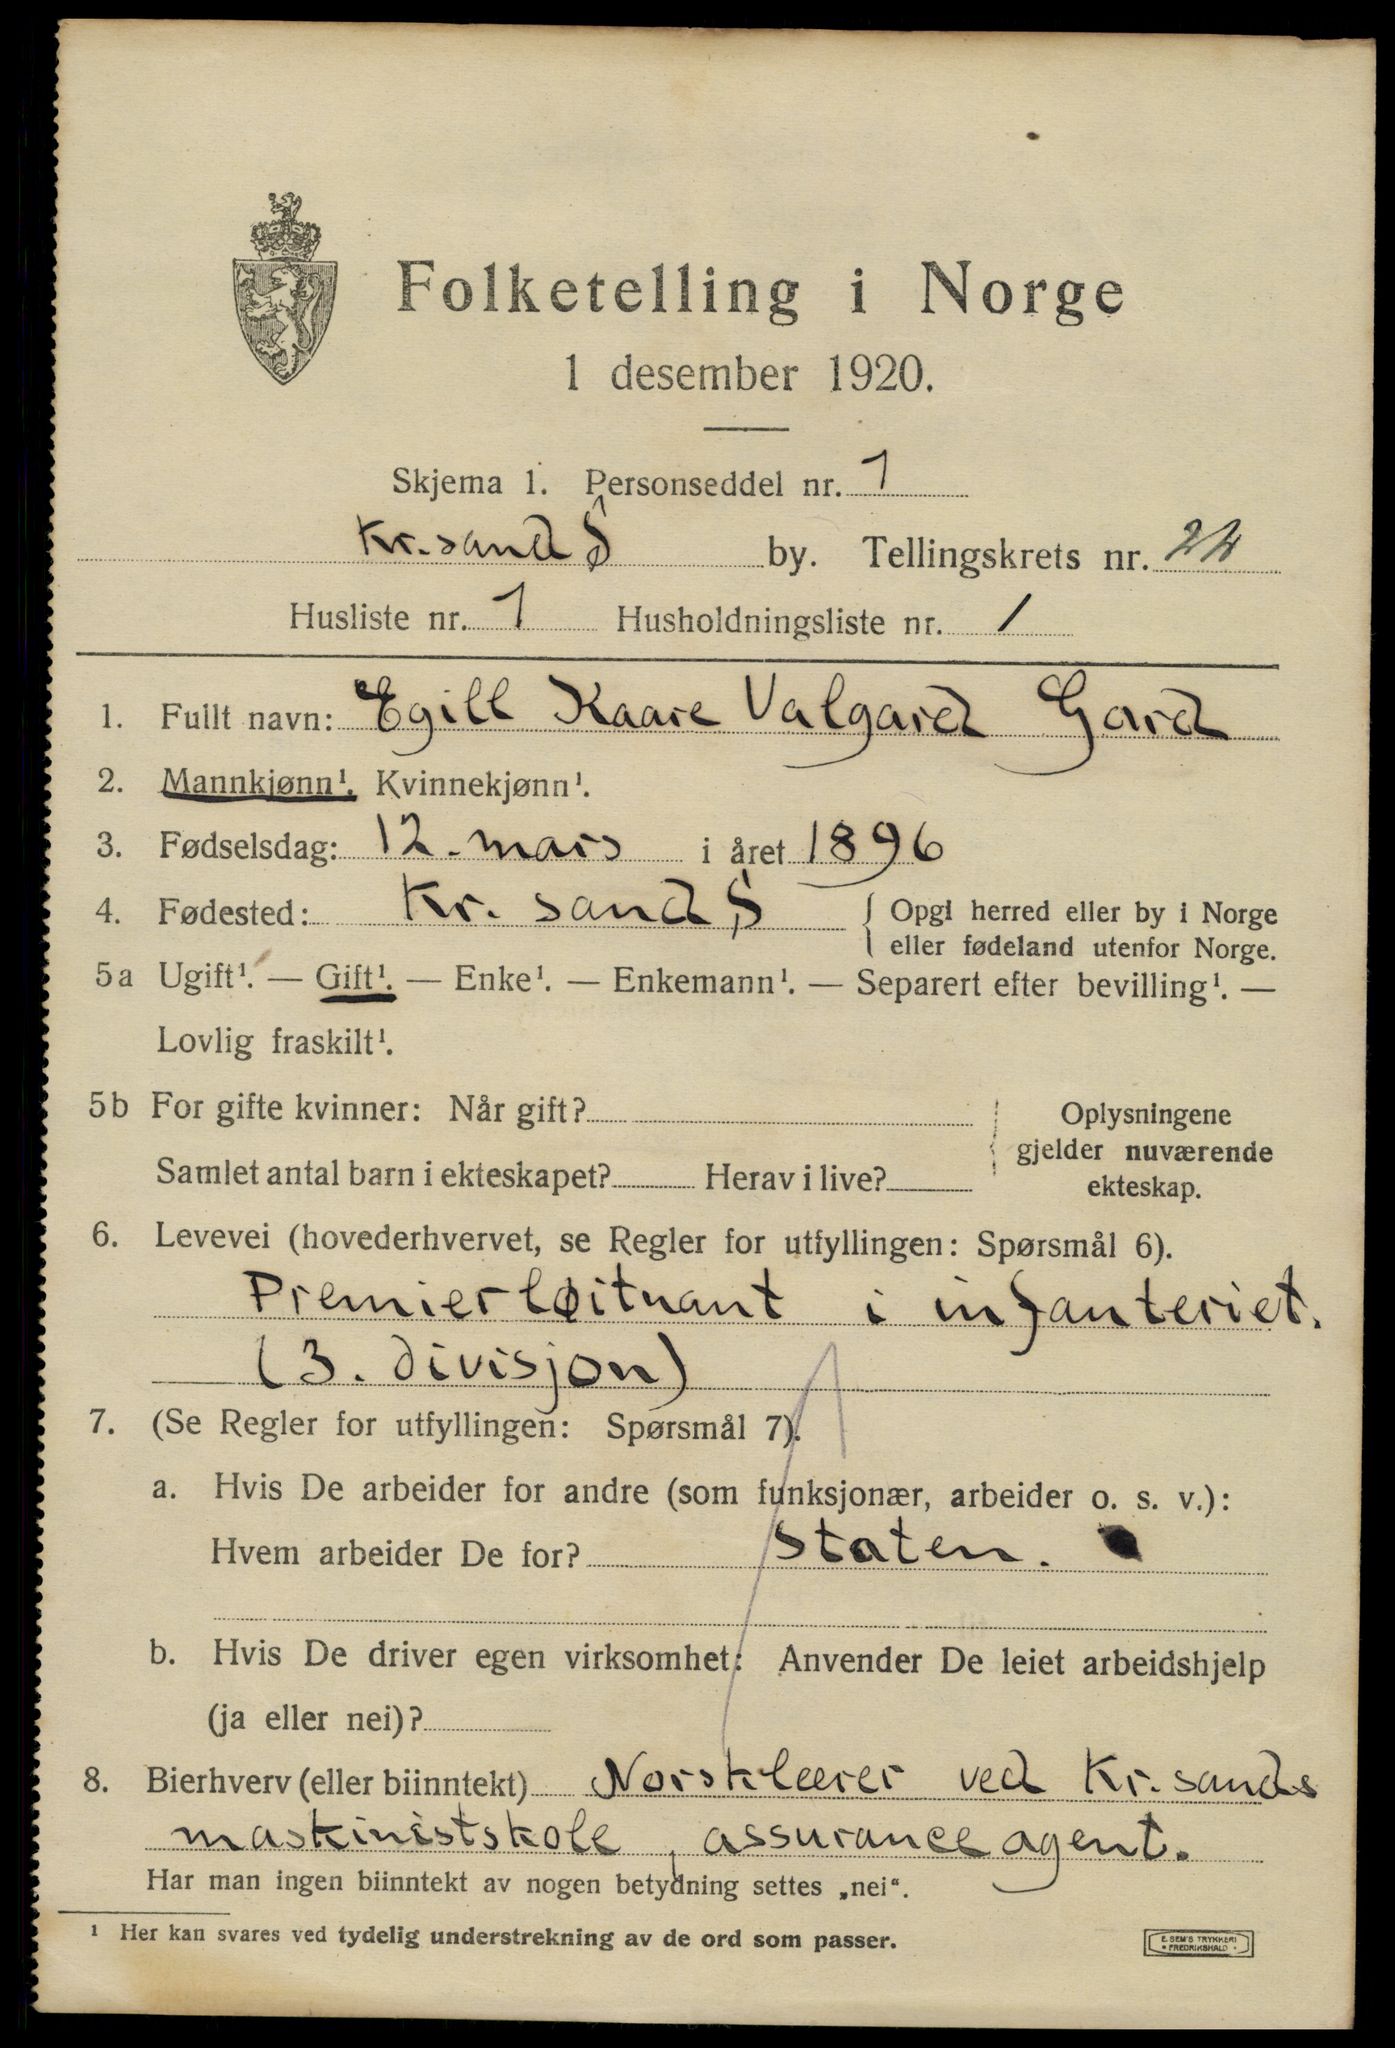 Folketelling i Norge
1 desember 1920.
Skjema 1. Personseddel nr. 1
Kr.sand S by. Tellingskrets nr. 24
Husliste nr. 1 Husholdningsliste nr. 1
1. Fullt navn: Egill Kaare Valgard Gard
2. Mannkjønn¹. Kvinnekjønn¹.
3. Fødselsdag: 12. mars i året 1896
4. Fødested: Kr. sand S { Opgi herred eller by i Norge
eller fødeland utenfor Norge.
5a Ugift¹. — Gift¹. — Enke¹. — Enkemann¹. — Separert efter bevilling¹. —
Lovlig fraskilt¹.
5b For gifte kvinner: Når gift?
Samlet antal barn i ekteskapet? Herav i live?
Oplysningene
gjelder nuværende
ekteskap.
6. Levevei (hovederhvervet, se Regler for utfyllingen: Spørsmål 6).
Premierløitnant i infanteriet.
(3. divisjon)
7. (Se Regler for utfyllingen: Spørsmål 7).
a. Hvis De arbeider for andre (som funksjonær, arbeider o. s. v.):
Hvem arbeider De for? Staten.
b. Hvis De driver egen virksomhet: Anvender De leiet arbeidshjelp
(ja eller nei)?
8. Bierhverv (eller biinntekt) Norsklærer ved Kr.sands
maskinistskole, assuranceagent.
Har man ingen biinntekt av nogen betydning settes „nei“.
¹ Her kan svares ved tydelig understrekning av de ord som passer.
E. SEM'S TRYKKERI
• FREDRIKSHALD •